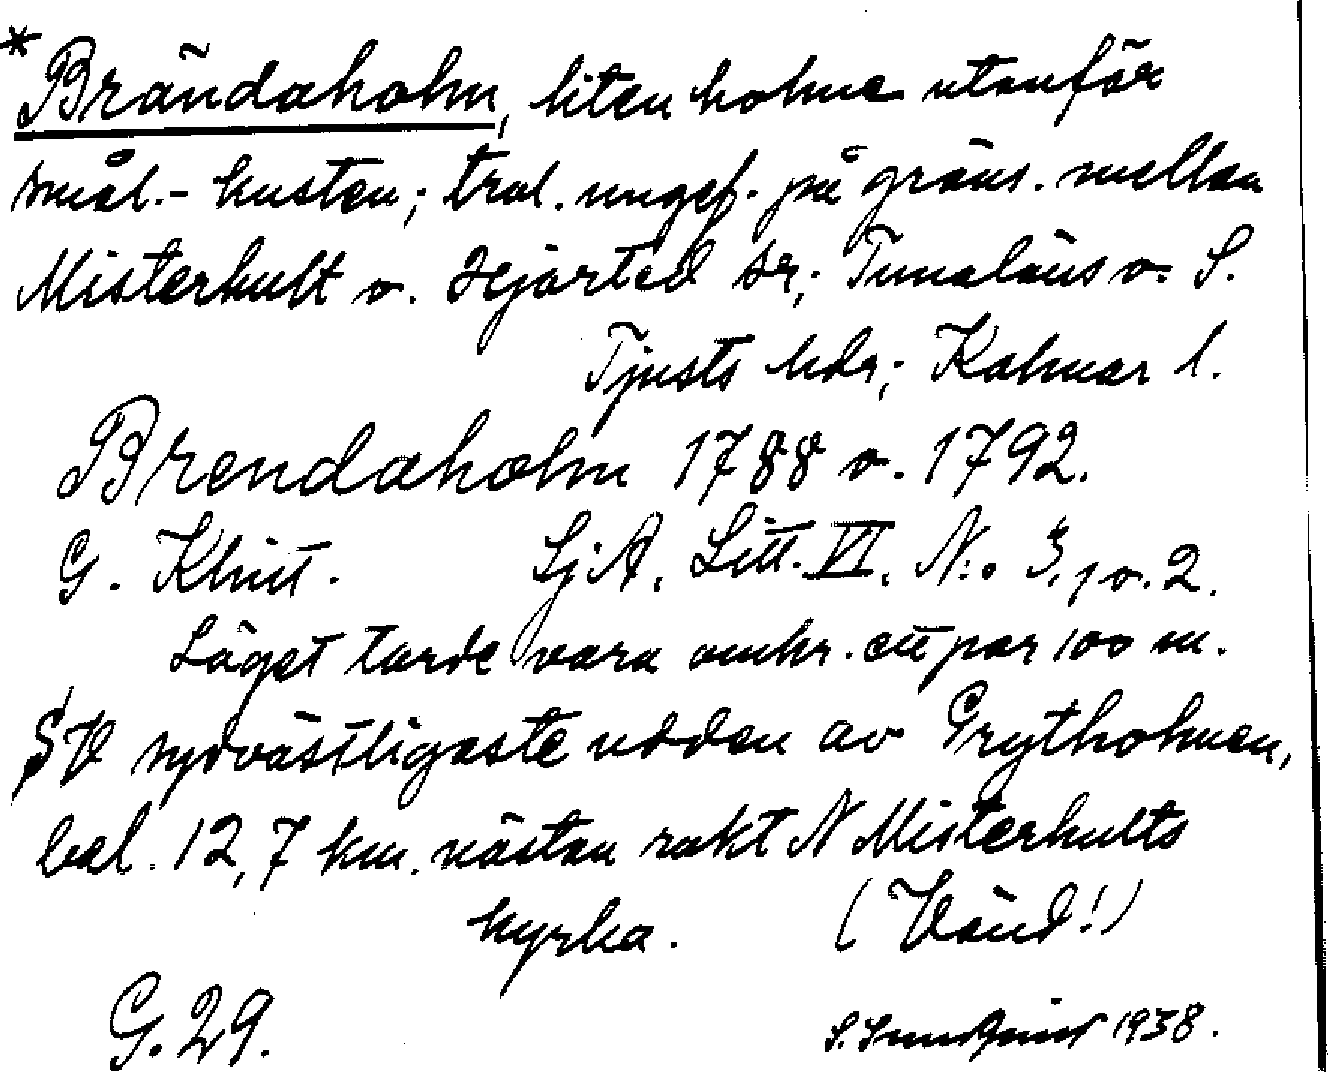 *Brändaholm, liten holme utanför
smål.-kusten; trol. ungef. på gräns. mellan
Misterhult o. Hjorted snr; Tunaläns o. S.
Tjusts hdr; Kalmar l.
Brendaholm 1788 o. 1792.
G. Klint. SjA, Litt. VI, N:o 3, 1 o. 2.
Läget torde vara omkr. ett par 100 m.
SV sydvästligaste udden av Grytholmen,
bel. 12,7 km. nästan rakt N Misterhults
kyrka. (Vänd!)
G. 29. S. Sundquist 1938.